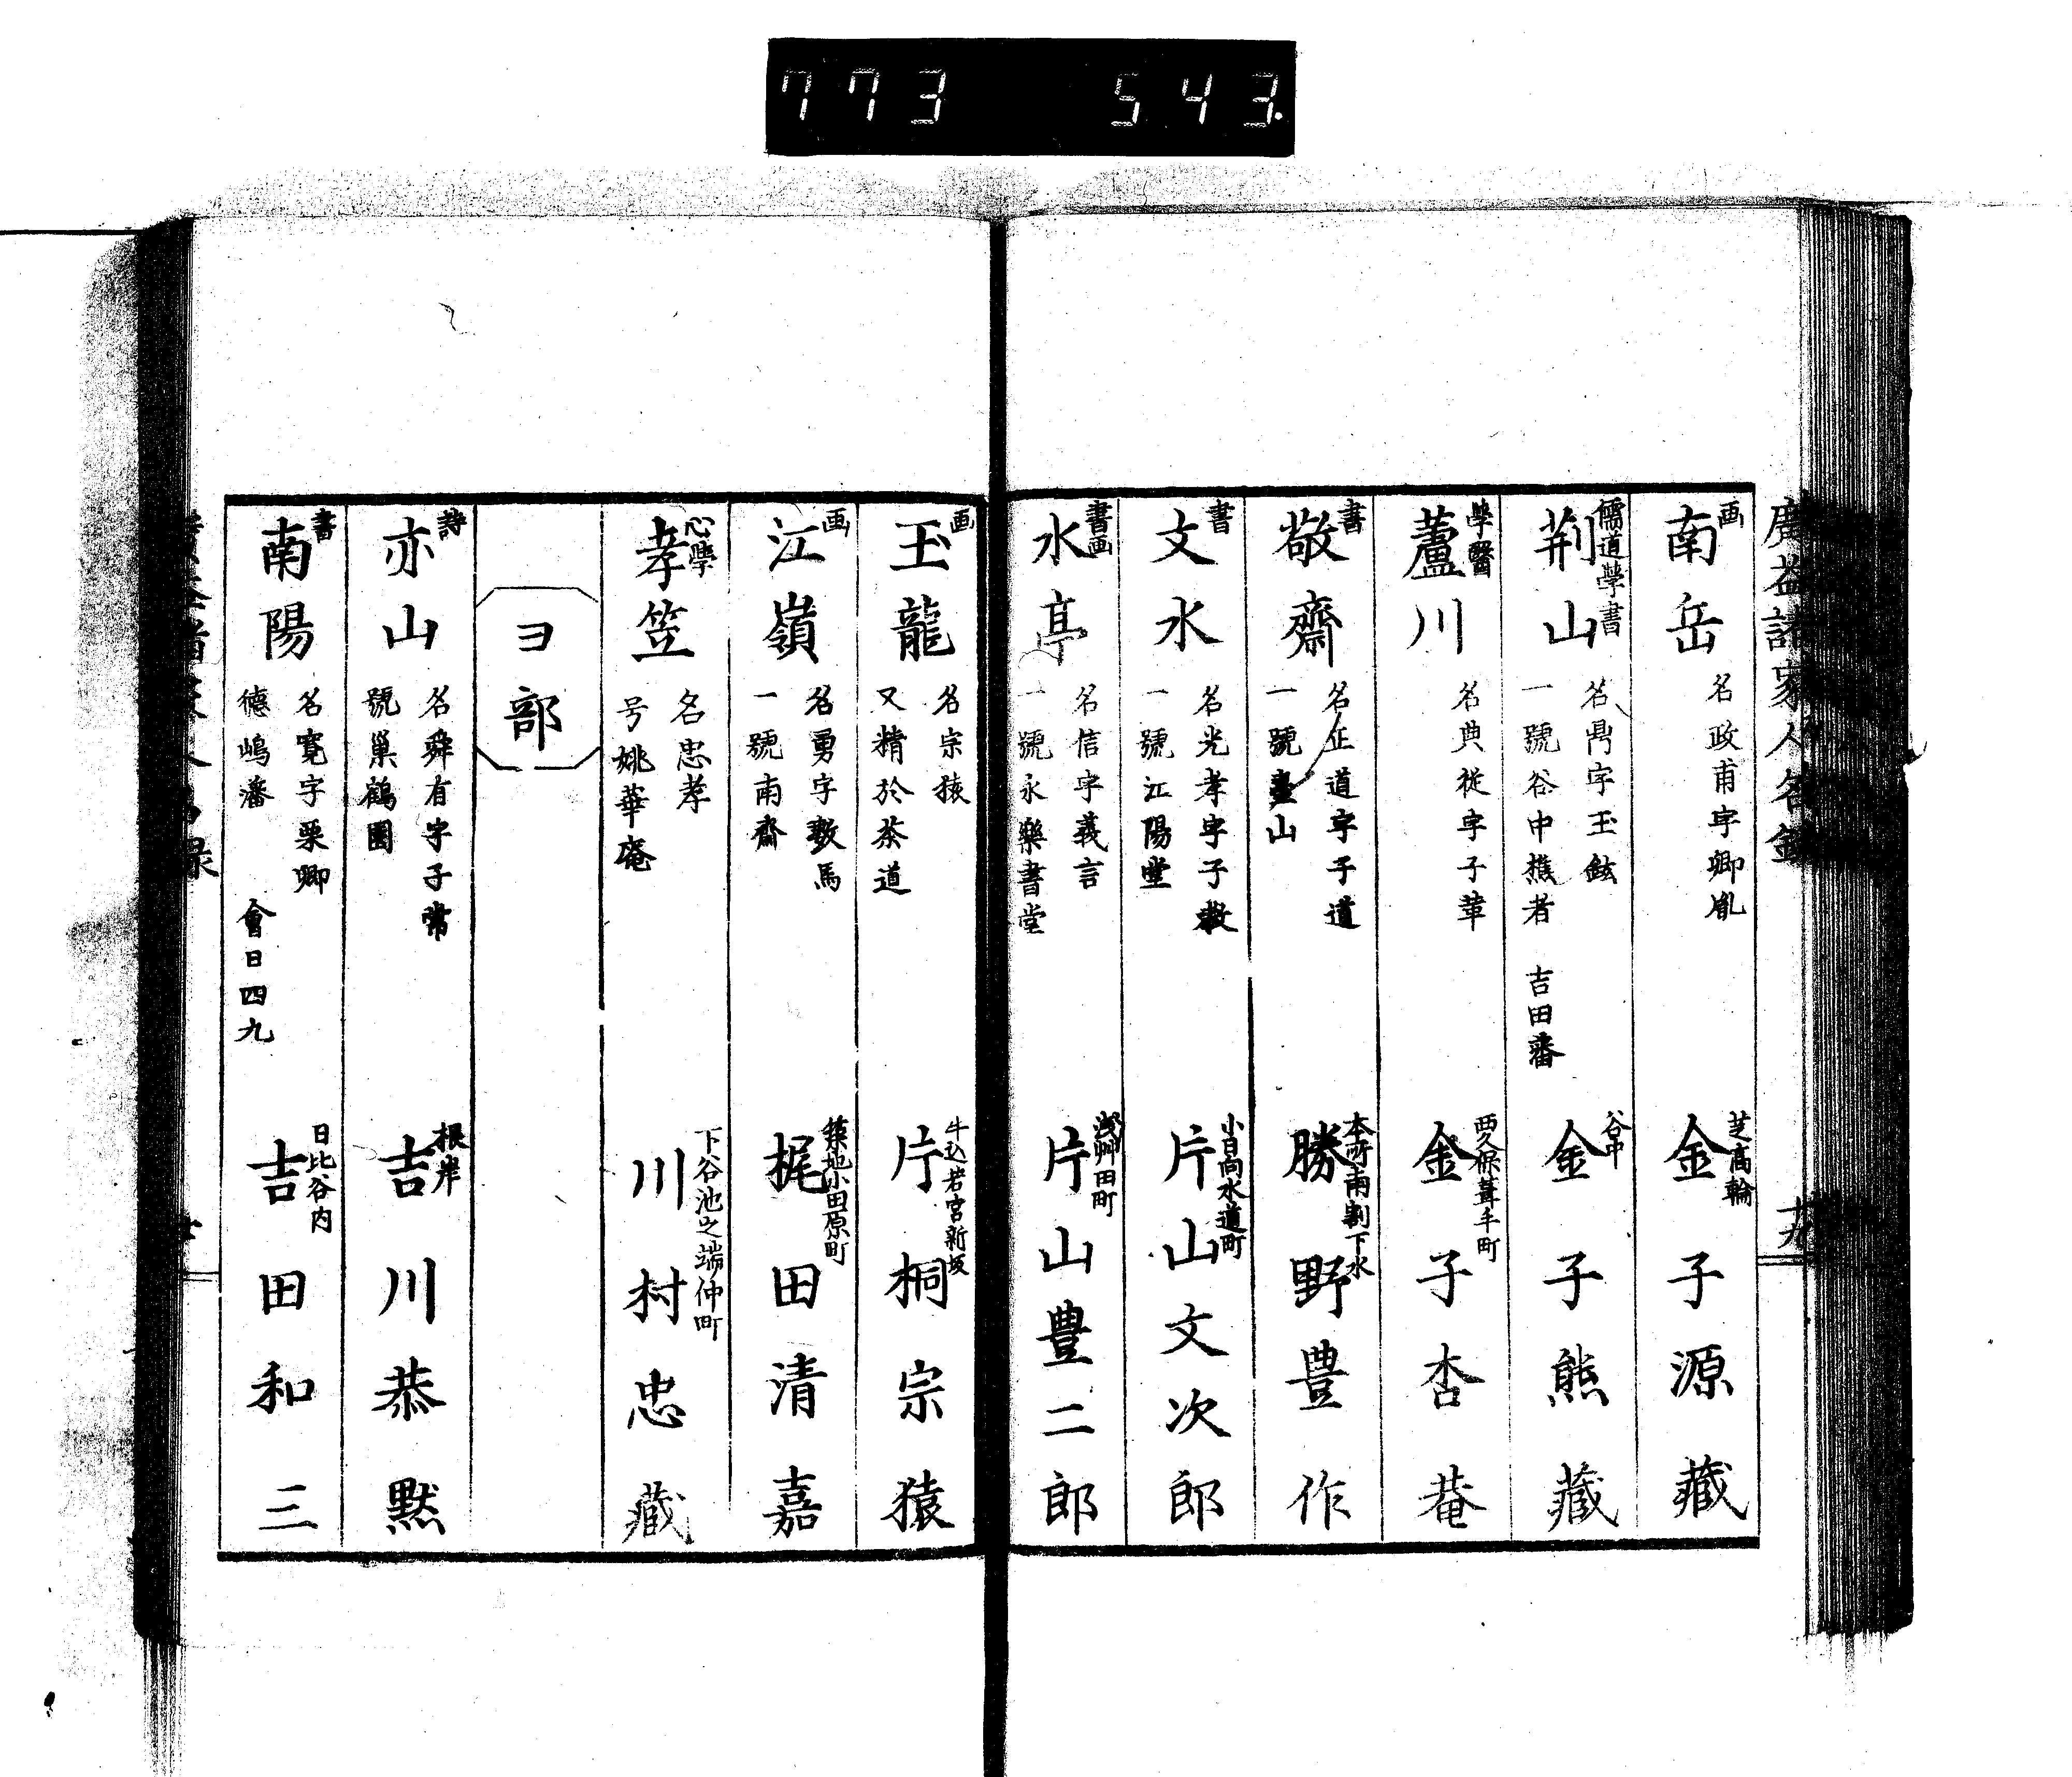 773 543.
廣益諸家人名録
廿九
画
南岳
名政甫字卿胤
芝高輪
金子源藏
儒道學書
荊山
名鼎字玉鉉
一號谷中樵者 吉田藩
谷中
金子熊藏
學醫
蘆川
名典徙字子葦
西久保葺手町
金子杏菴
書
敬齋
名正道字子道
一號臺山
本所南割下水
勝野豊作
書
文水
名光孝字子教
一號江陽堂
小日向水道町
片山文次郎
書画
水亭
名信字義言
一號永樂書堂
淺艸田町
片山豊二郎
画
玉龍
名宗猿
又精於茶道
牛込若宮新坂
片桐宗猿
画
江嶺
名勇字數馬
一號南齋
築地小田原町
梶田清嘉
心學
孝笠
名忠孝
号姚華菴
下谷池之端仲町
川村忠藏
ヨ部
詩
亦山
名舜有字子常
號巢鶴園
根岸
吉川恭黙
書
南陽
名寛字栗卿
德嶋藩 會日四九
日比谷内
吉田和三